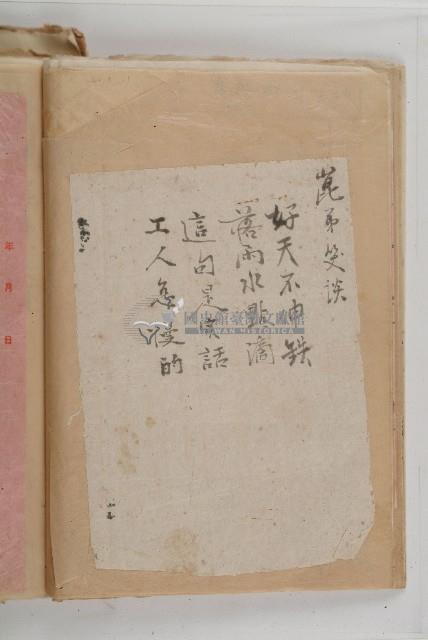 崑弟笑談
好天不由鉄
落雨水點滴
這句是實話
工人怎慢的
年月日
國史館臺灣文獻館
TAIWAN HISTORICA